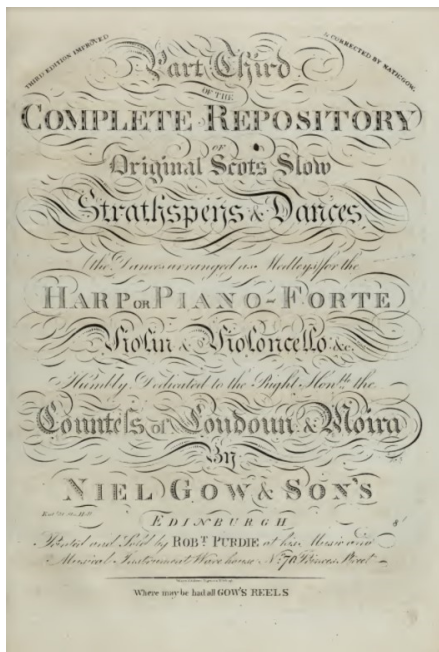 THIRD EDITION IMPROVED
& CORRECTED BY NATH. GOW.
Part Third
OF THE
COMPLETE REPOSITORY
OF
Original Scots Slow
Strathspeys & Dances
(the Dances arranged as Medleys) for the
HARP OR PIANO-FORTE
Violin & Violoncello &c.
Humbly Dedicated to the Right Honble. the
Countess of Loudoun & Moira
By
NIEL GOW & SON'S
EDINBURGH
Printed and Sold by ROBT. PURDIE at his Music and
Musical Instrument Warehouse No. 70 Princes Street
Where may be had all GOW'S REELS